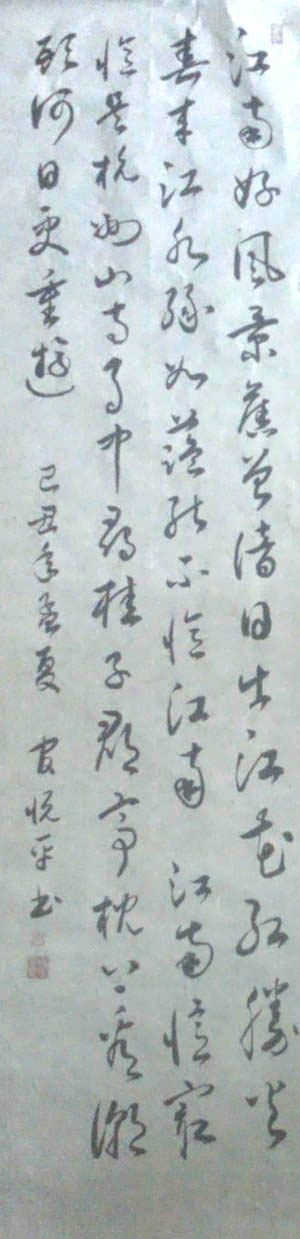 江南好風景舊曾諳日出江花紅勝火
春來江水綠如藍能不憶江南 江南憶最
憶是杭州山寺月中尋桂子郡亭枕上看潮
頭何日更重遊
己丑年孟夏 官悅平书